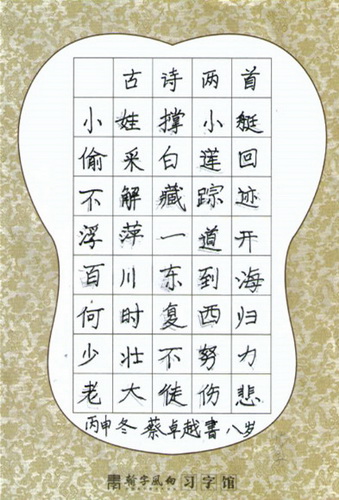 古诗两首
小娃撑小艇
偷采白莲回
不解藏踪迹
浮萍一道开
百川东到海
何时复西归
少壮不努力
老大徒伤悲
丙申冬 蔡卓越書 八岁
习字馆